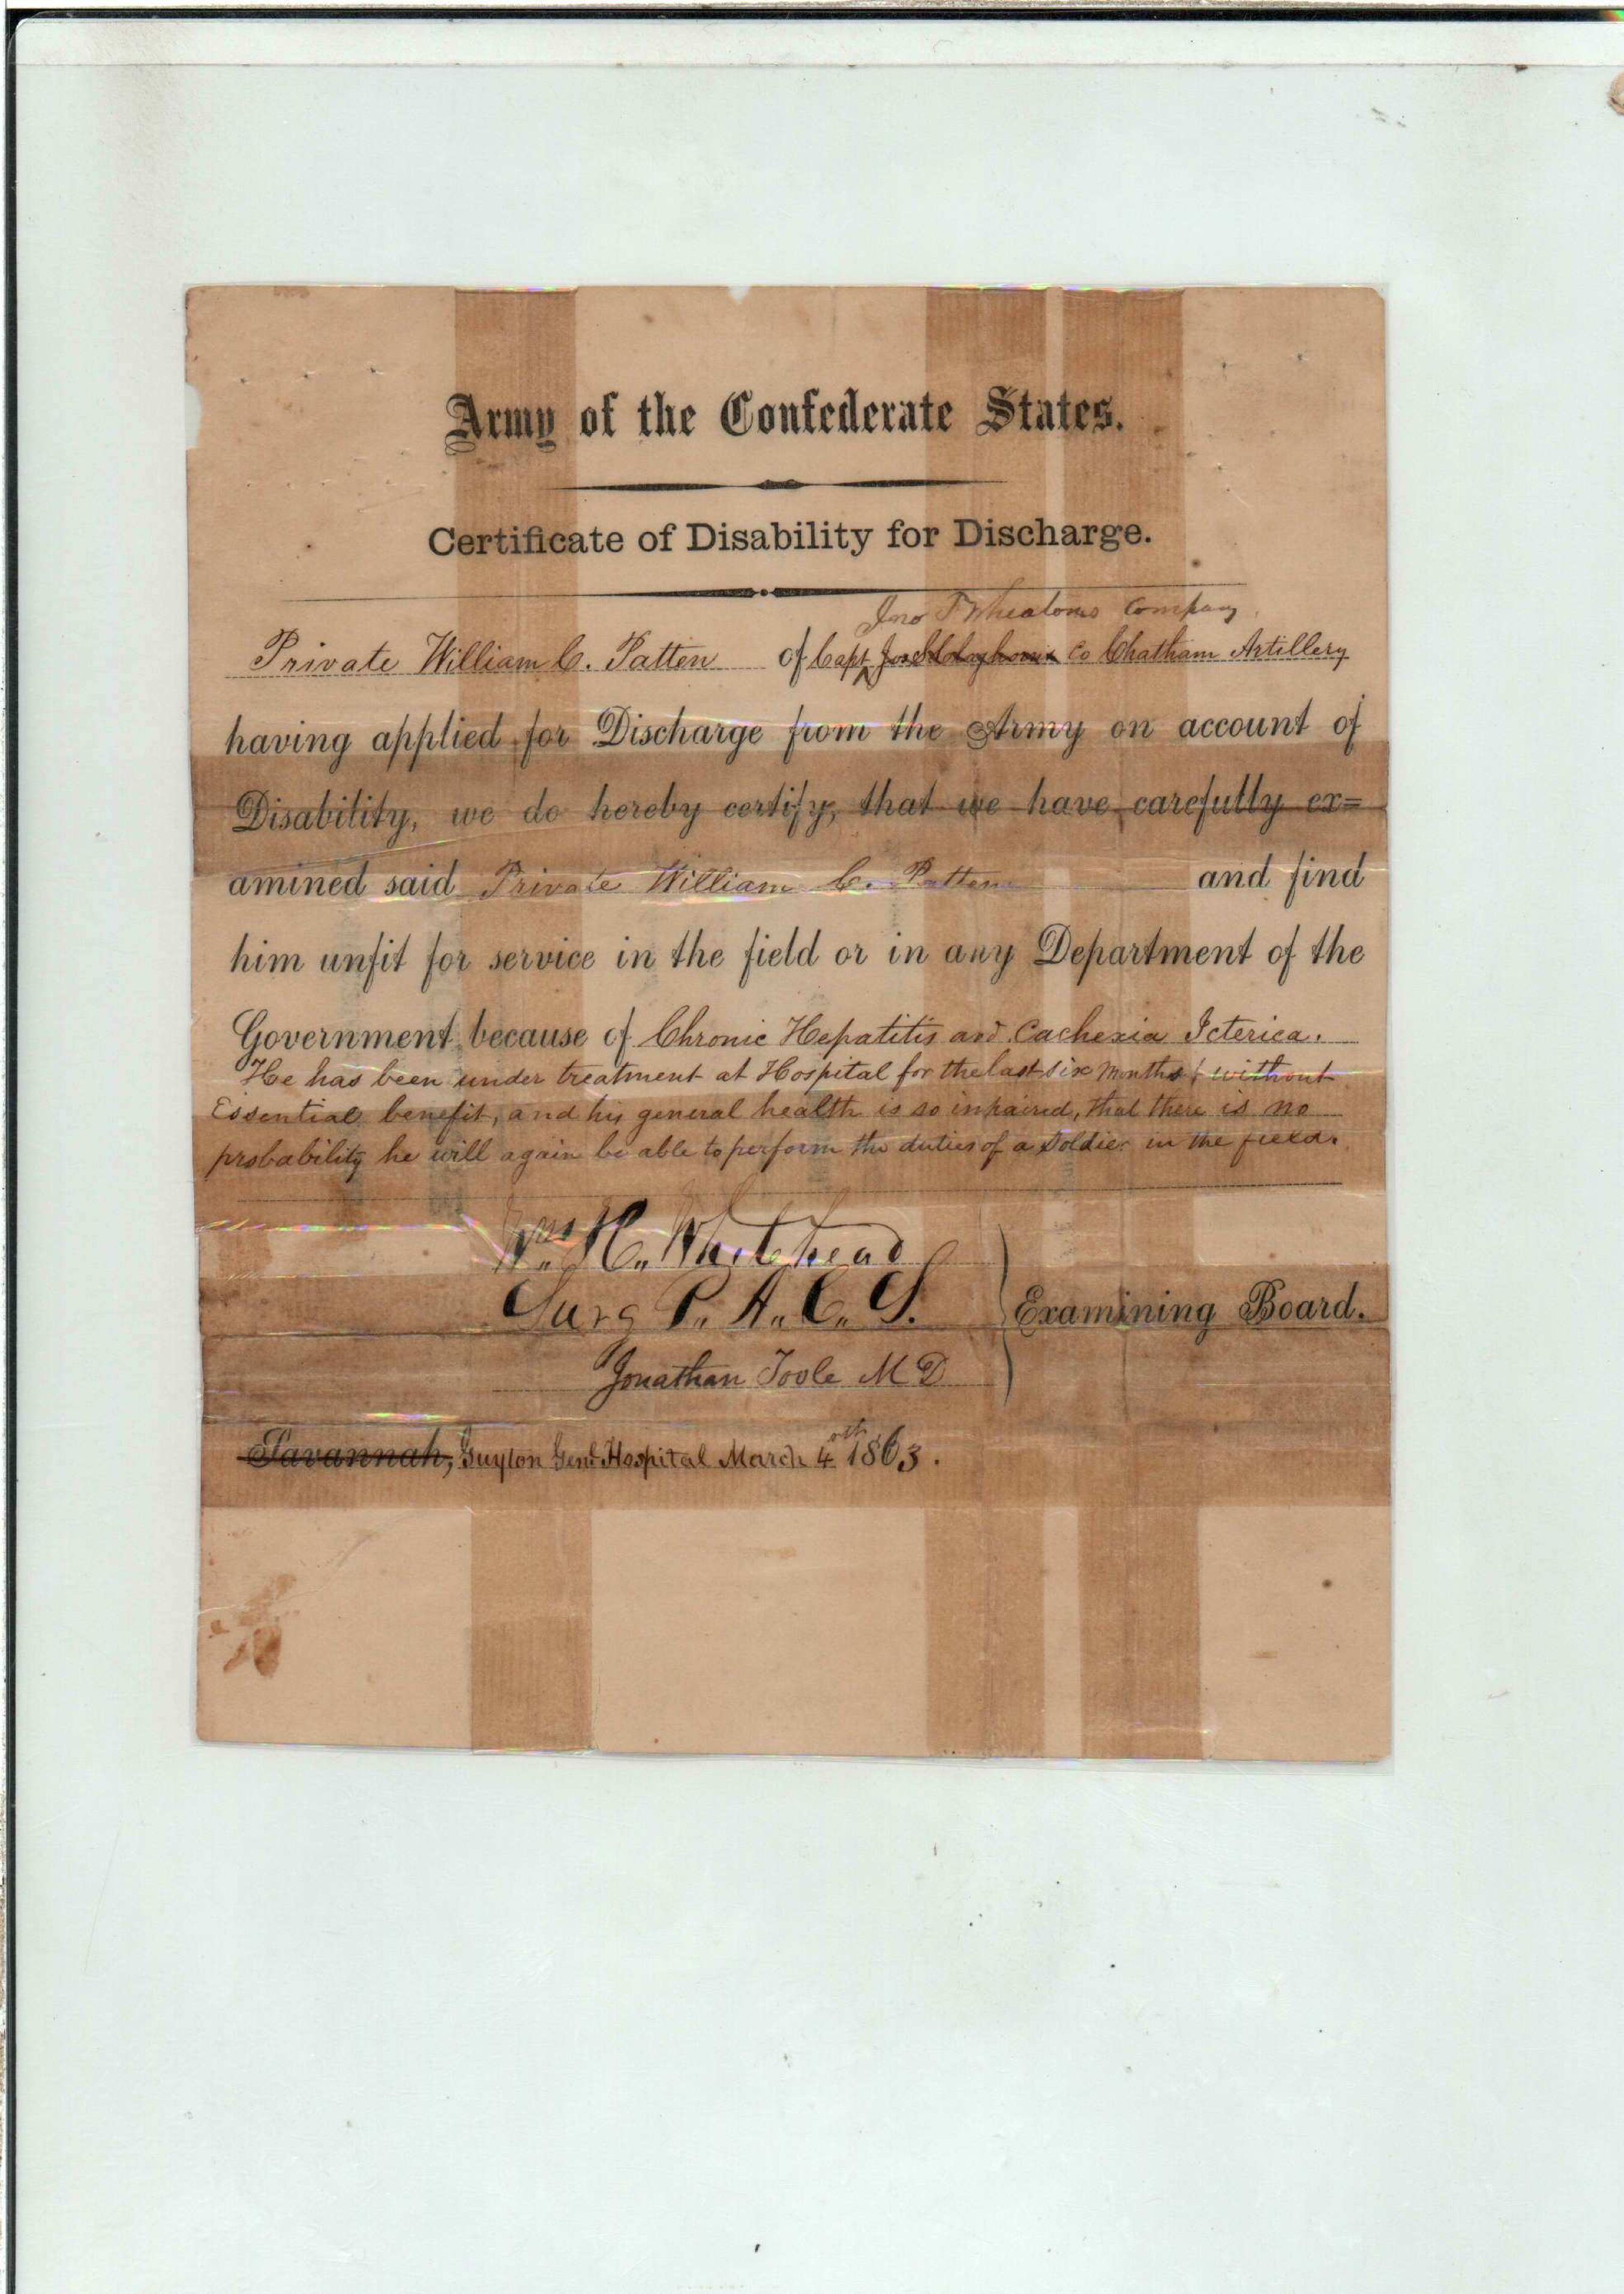 Army of the Confederate States.
Certificate of Disability for Discharge.
Jno F Wheatons Company
Private William C. Patten of Capt Co Chatham Artillery
having applied for Discharge from the Army on account of
Disability, we do hereby certify, that we have carefully ex=
amined said Private William C. Patten and find
him unfit for service in the field or in any Department of the
Government because of Chronic Hepatitis and Cachexia Icterica.
He has been under treatment at Hospital for the last six months without
Essential benefit, and his general health is so impaired, that there is no
probability he will again be able to perform the duties of a soldier in the field.
Wm. H. Whitehead
Surg P. A. C. S. Examining Board.
Jonathan Toole M D
Savannah, Guyton Genl. Hospital March 4th 1863.